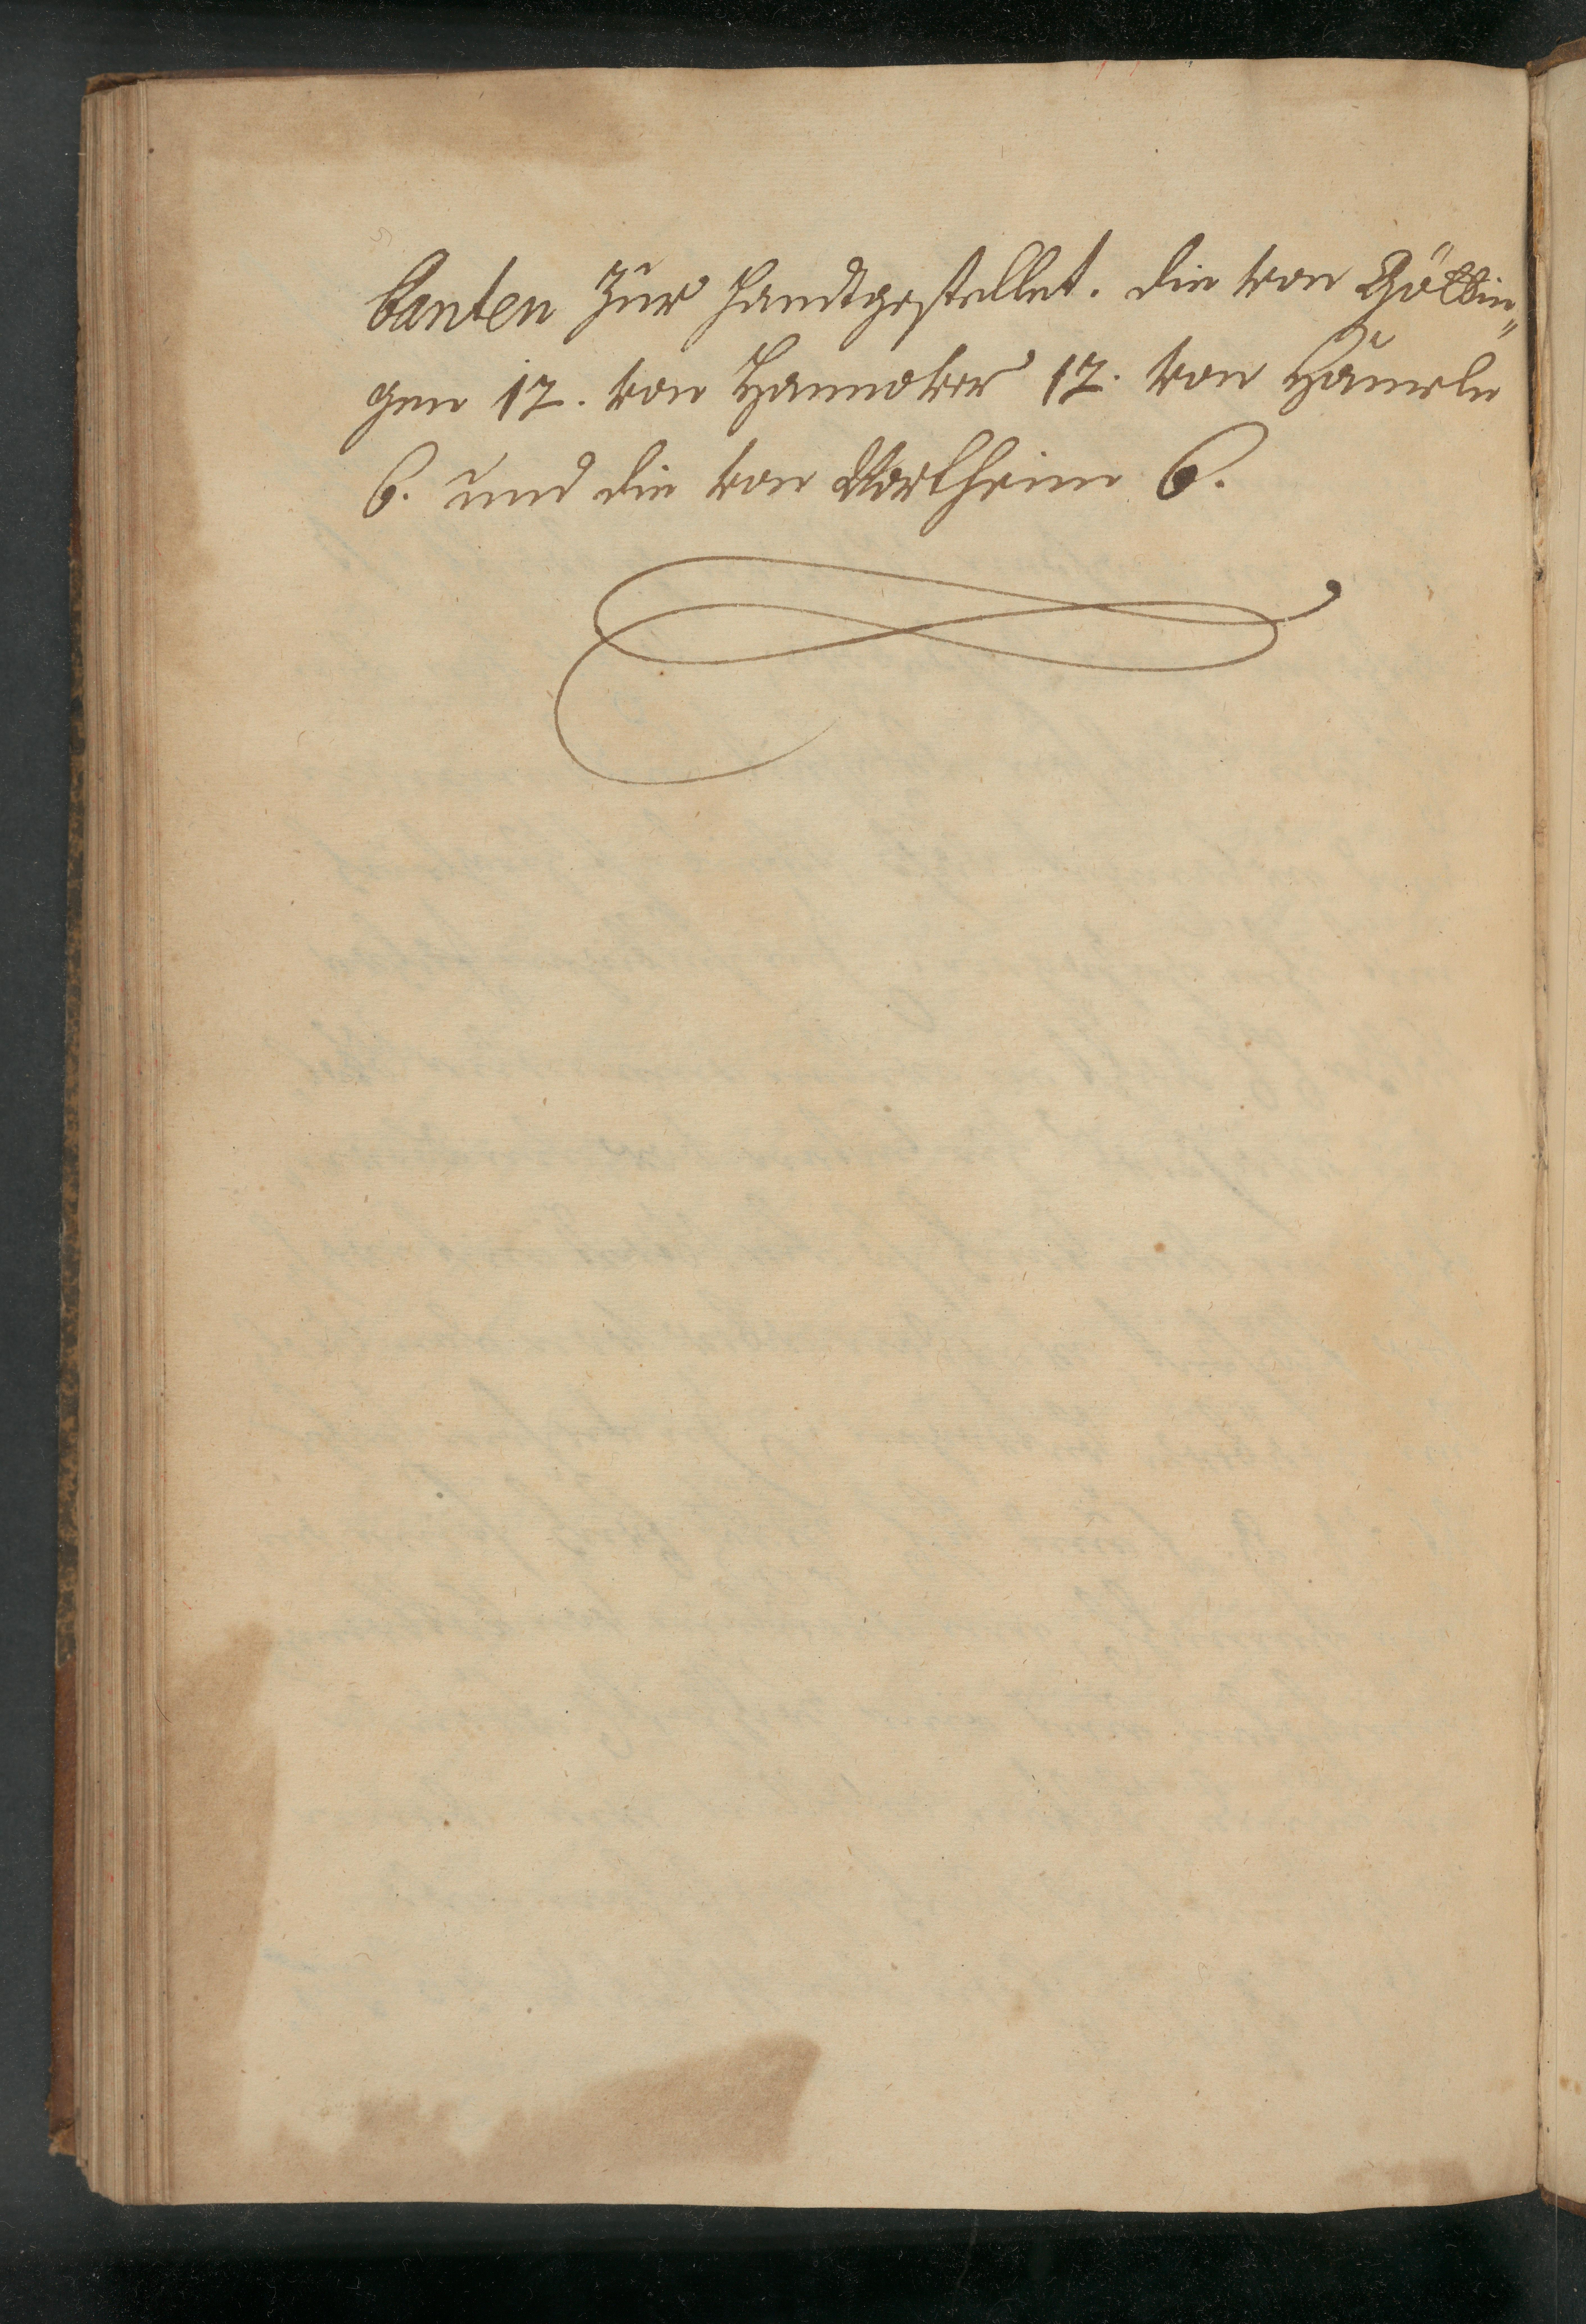 canten zur Handtgestellet. die von Götting„
gen 12. von Hannover 12. von Hameln
6. und die von Northeim 6.